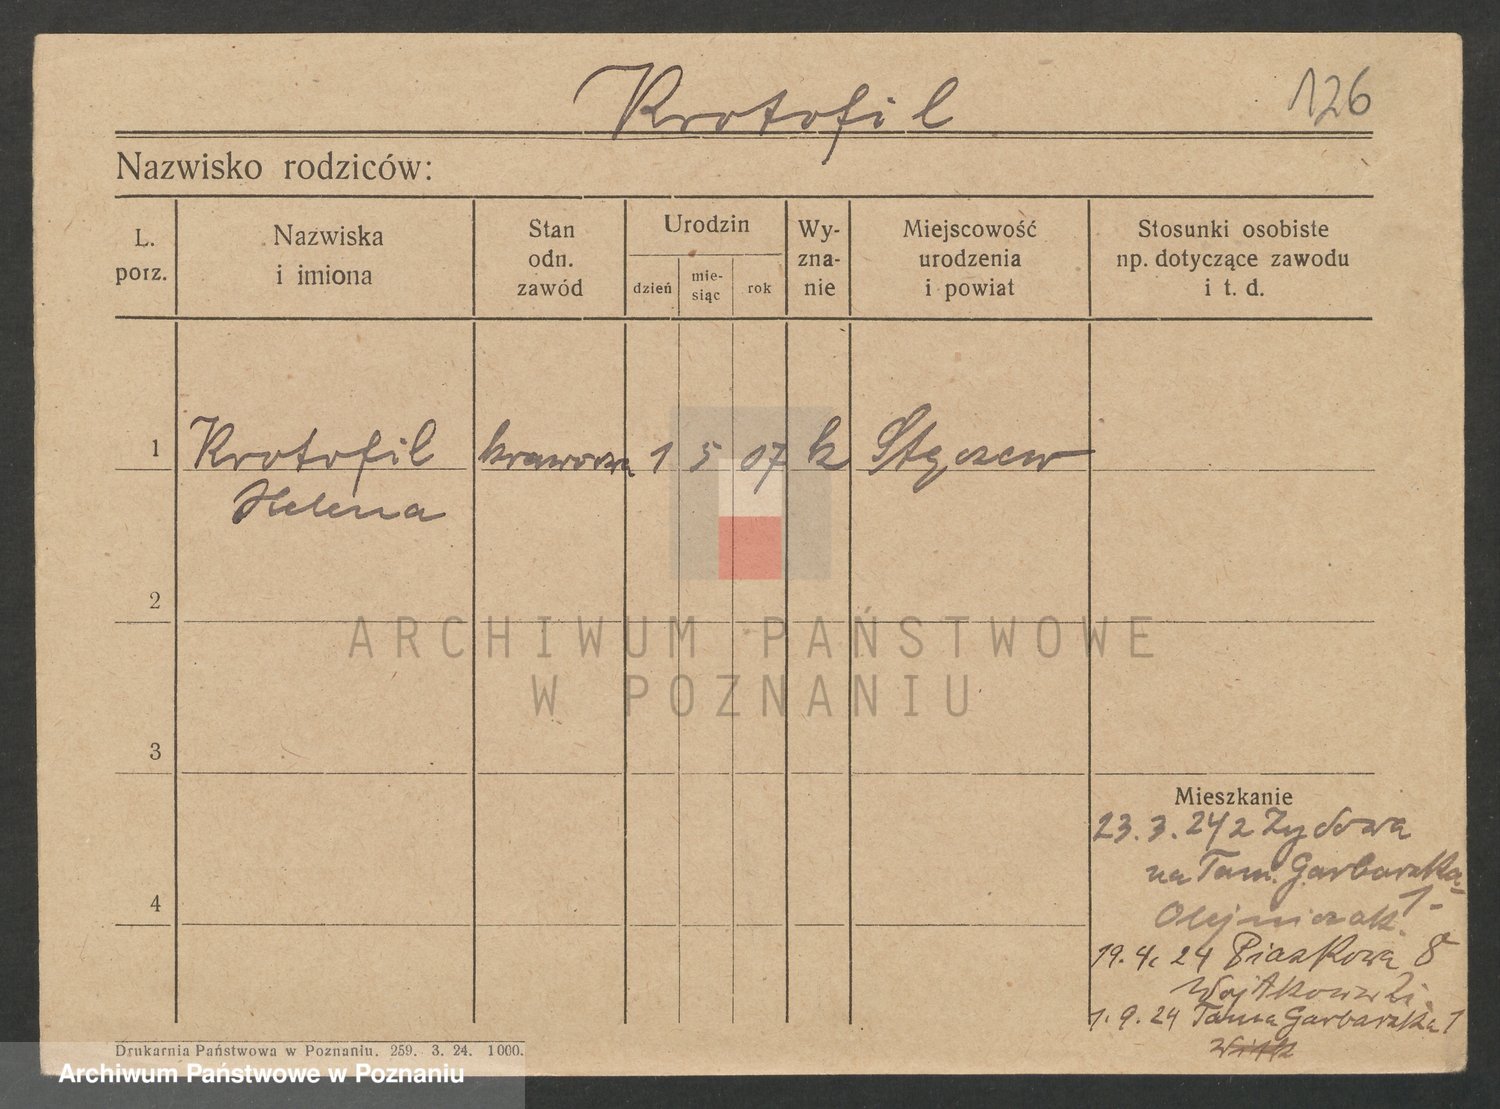 Krotofil
126
Nazwisko rodziców:
L. porz.
Nazwiska i imiona
Stan odn. zawód
Urodzin
dzień
mie-siąc
rok
Wy-zna-nie
Miejscowość urodzenia i powiat
Stosunki osobiste np. dotyczące zawodu i t. d.
1 Krotofil krawcowa 1 5 07 k
Helena
2
ARCHIWUM PAŃSTWOWE
W POZNANIU
3
Mieszkanie
23. 3. 24 z Żydowa
na Tam. Garbarska
4
1-
Olejniczak.
19. 4. 24 Piaskowa 8
Wojtkowski.
1. 9. 24 Tama Garbarska 1
Drukarnia Państwowa w Poznaniu. 259. 3. 24. 1000.
Archiwum Państwowe w Poznaniu